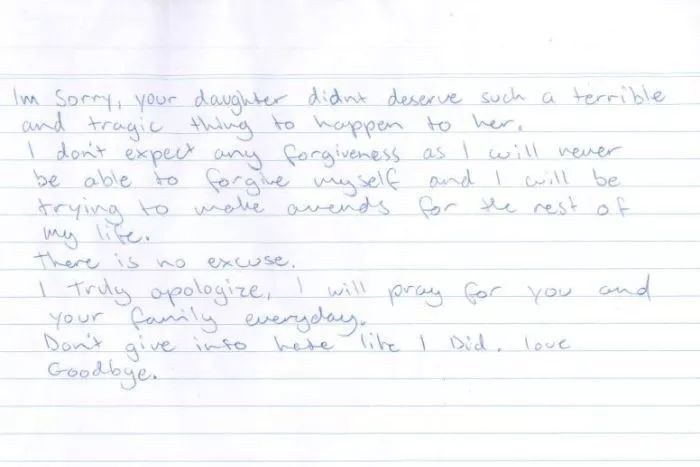 Im Sorry, your daughter didnt deserve such a terrible
and tragic thing to happen to her.
I don't expect any forgiveness as I will never
be able to forgive myself and I will be
trying to make amends for the rest of
my life.
There is no excuse.
I Truly apologize, I will pray for you and
your family everyday.
Don't give into hate like I Did. love
Goodbye.